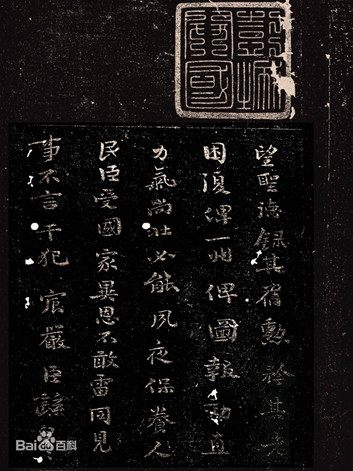 望聖德録其舊勳矜其老
困復俾一州俾圖報効直
力氣尚壯必能夙夜保養人
民臣受國家異恩不敢雷同見
事不言干犯宸嚴臣繇
Baidu百科